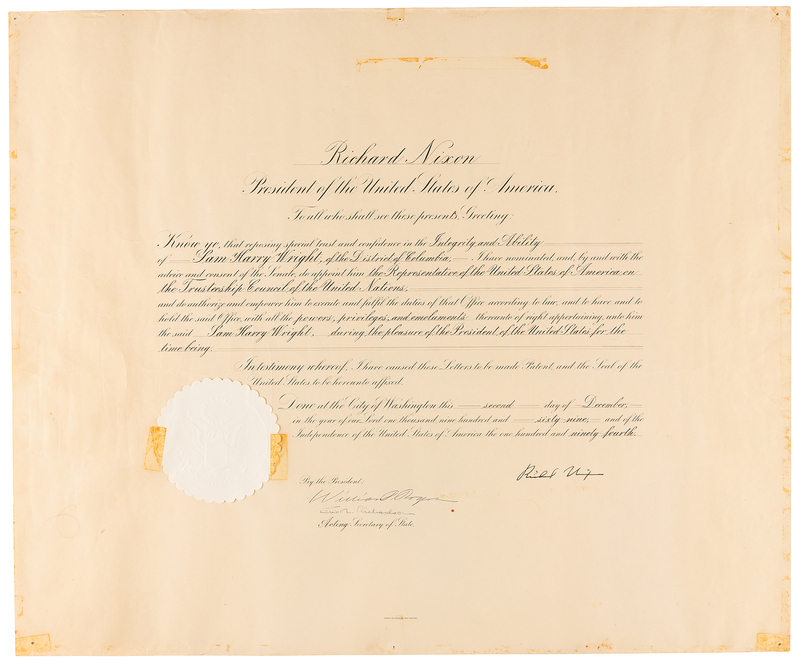 Richard Nixon
President of the United States of America.
To all who shall see these presents, Greeting:
Know ye, that reposing special trust and confidence in the Integrity and Ability
of Sam Harry Wright, of the District of Columbia, I have nominated, and, by and with the
advice and consent of the Senate, do appoint him the Representative of the United States of America on
the Trusteeship Council of the United Nations,
and do authorize and empower him to execute and fulfil the duties of that Office according to law, and to have and to
hold the said Office, with all the powers, privileges, and emoluments thereunto of right appertaining, unto him
the said Sam Harry Wright, during the pleasure of the President of the United States for the
time being.
In testimony whereof, I have caused these Letters to be made Patent, and the Seal of the
United States to be hereunto affixed.
Done at the City of Washington this second day of December,
in the year of our Lord one thousand nine hundred and sixty nine, and of the
Independence of the United States of America the one hundred and ninety fourth.
By the President:
Richard Nixon
William P. Rogers
Richardson
Acting Secretary of State.